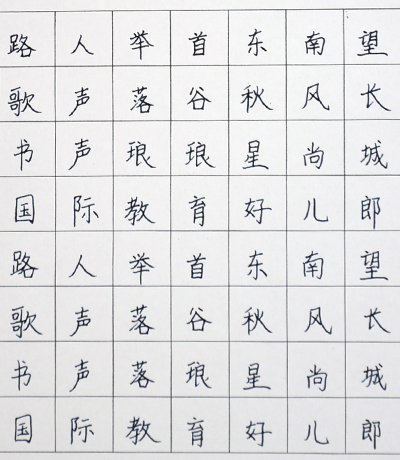 路人举首东南望
歌声落谷秋风长
书声琅琅星尚城
国际教育好儿郎
路人举首东南望
歌声落谷秋风长
书声落琅星尚城
国际教育好儿郎